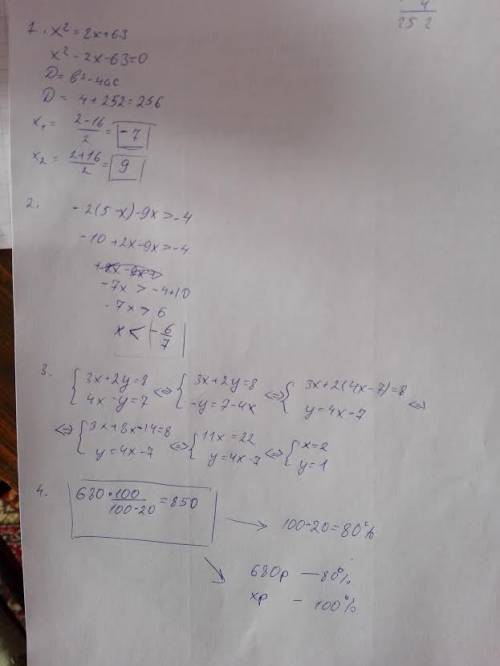 4
252
1. x² = 2x+63
x² - 2x - 63=0
D= b²-4ac
D= 4+252=256
x₁ = (2-16)/2 = -7
x₂ = (2+16)/2 = 9
2. -2(5-x)-9x>-4
-10+2x-9x>-4
-7x > -4+10
-7x > 6
x < -6/7
3. { 3x+2y=8 ; 4x-y=7 <=> { 3x+2y=8 ; -y=7-4x <=> { 3x+2(4x-7)=8 ; y=4x-7 <=>
<=> { 3x+8x-14=8 ; y=4x-7 <=> { 11x=22 ; y=4x-7 <=> { x=2 ; y=1
4. 680•100/(100-20)=850
→ 100-20=80%
680р — 80%
xр — 100%